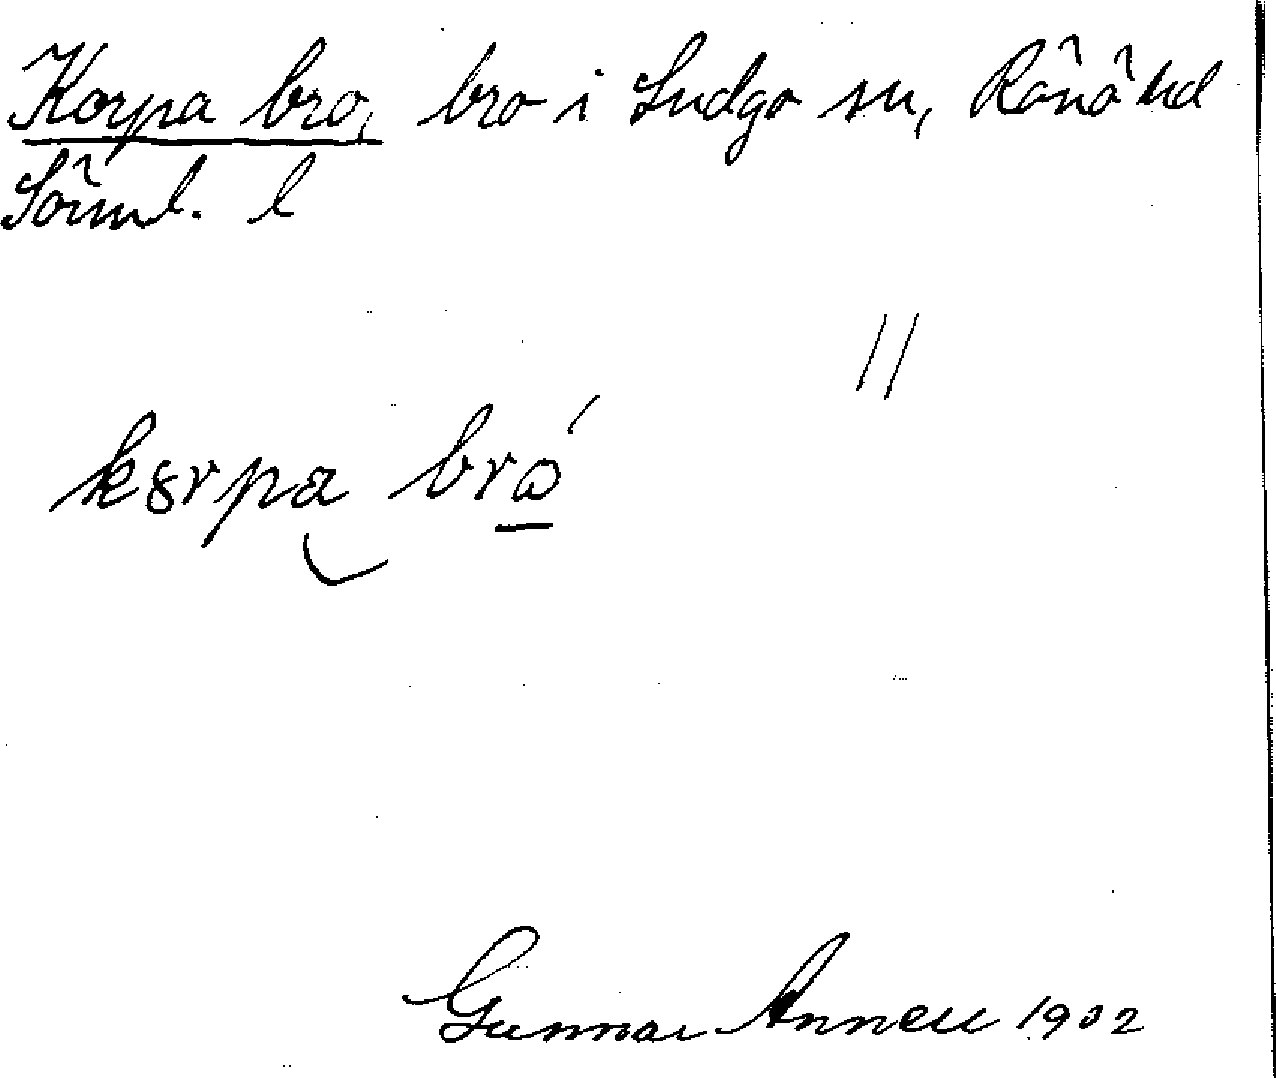 Korpa bro, bro i Ludgo sn, Rönö hd
Söml. l
//
kȣrpa brώ
Gunnar Annell 1902